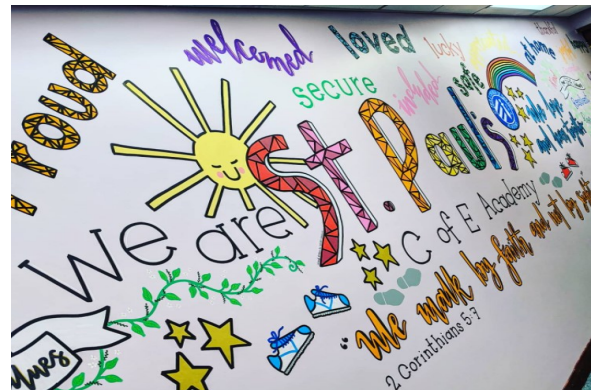 Proud
welcomed
loved
lucky
secure
included
safe
at home
We are St. Pauls
C of E Academy
"We walk by faith and not by
2 Corinthians 5:7